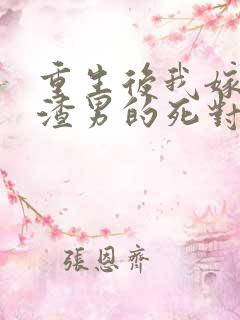 重生後我嫁
渣男的死對
張恩齊